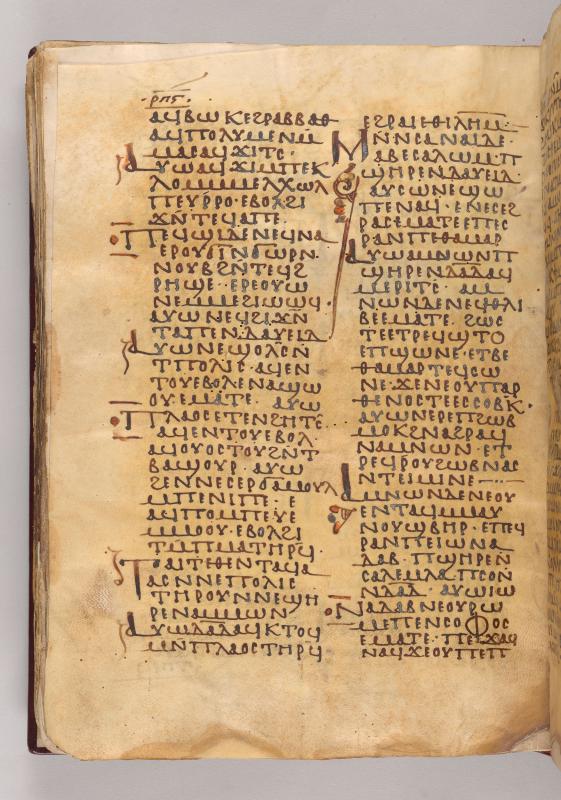 ·ⲣ̅ⲡ̅ⲋ̅·
ⲁϥⲃⲱⲕⲉϩⲣⲁⲃⲃⲁⲑ
ⲁϥⲡⲟⲗⲩⲙⲉⲛⲙ̄
ⲙⲁⲥⲁϥϫⲓⲧⲥ·
ⲁⲩⲱⲁϥϫⲓⲙⲡⲉⲕ
ⲗⲟⲙⲙⲙⲉⲗⲭⲟⲗ
ⲡⲉⲩⲣⲣⲟ·ⲉⲃⲟⲗϩⲓ
ϫⲛ̄ⲧⲉϥⲁⲡⲉ·
ⲡⲉϥϣⲓⲇⲉⲛⲉϥⲛⲁ
ⲉⲣⲟⲩϭⲓⲛϭⲱⲣⲛ·
ⲛⲟⲩⲃϩⲛⲧⲉϥϩ
ⲣⲏϣⲉ··ⲉⲣⲉⲟⲩⲱ
ⲛⲉⲙⲙⲉϩⲓⲱⲱϥ·
ⲁⲩⲱⲛⲉϥϩⲓϫⲛ̄
ⲧⲁⲡⲉⲛⲇⲁⲩⲉⲓⲇ
ⲁⲩⲱⲛⲉϣⲟⲗⲥⲛ̄
ⲧⲡⲟⲗⲓⲥ·ⲁϥⲉⲛ
ⲧⲟⲩⲉⲃⲟⲗⲉⲛⲁϣⲱ
ⲟⲩ·ⲉⲙⲁⲧⲉ·ⲁⲩⲱ
ⲡⲗⲁⲟⲥⲉⲧⲉⲛϩⲏⲧⲥ̄
ⲁϥⲉⲛⲧⲟⲩⲉⲃⲟⲗ·
ⲁϥⲟⲩⲟⲥⲧⲟⲩϩⲛ̄ⲧ
ⲃⲁϣⲟⲩⲣ·ⲁⲩⲱ
ϩⲉⲛⲛⲉⲥⲉⲣϭⲁⲙⲟⲩⲗ
ⲙⲡⲉⲛⲓⲡⲉ·ⲉ
ⲁϥⲡⲟⲙⲡⲉⲩⲉ
ⲙⲙⲟⲟⲩ·ⲉⲃⲟⲗϩⲓ
ⲧⲙ̄ⲡⲙⲁⲧⲏⲣϥ·
ⲧⲁⲓⲧⲉⲑⲉⲛⲧⲁϥⲁ
ⲁⲥⲛⲛⲉⲡⲟⲗⲓⲥ
ⲧⲏⲣⲟⲩⲛⲛⲉϣⲏ
ⲣⲉⲛⲁⲙⲙⲱⲛ·
ⲁⲩⲱⲇ̅ⲁ̅ⲇ̅ⲁϥⲕⲧⲟϥ
ⲙⲛ̄ⲡⲗⲁⲟⲥⲧⲏⲣϥ
ⲉϩⲣⲁⲓⲉⲑⲓⲗⲏ̅ⲙ̅·
ⲙⲛ̄ⲛⲥⲁⲛⲁⲓⲇⲉ·
ⲁⲃⲉⲥⲁⲗⲱⲙⲡ
ϣⲏⲣⲉⲛⲇⲁⲩⲉⲓⲇ·
ⲁⲩⲥⲱⲛⲉϣⲱ
ⲡⲉⲛⲁϥ·ⲉⲛⲉⲥⲉϩ
ⲣⲁⲥⲉⲙⲁⲧⲉⲉⲡⲉⲥ
ⲣⲁⲛⲡⲉⲑⲁⲙⲁⲣ
ⲁⲩⲱⲁⲙⲛⲱⲛⲡ
ϣⲏⲣⲉⲛⲇ̅ⲁ̅ⲇ̅ⲁϥ
ⲙⲉⲣⲓⲧⲥ·ⲁⲙ
ⲛⲱⲛⲇⲉⲛⲉϥⲑⲗⲓ
ⲃⲉⲉⲙⲁⲧⲉ·ϩⲱⲥ
ⲧⲉⲉⲧⲣⲉϥⲧⲟ
ⲉⲡϣⲱⲛⲉ·ⲉⲧⲃⲉ
ⲑⲁⲙⲁⲣⲧⲉϥⲥⲱ
ⲛⲉ·ϫⲉⲛⲉⲟⲩⲡⲁⲣ
ⲑⲉⲛⲟⲥⲧⲉⲉⲥⲥⲟⲃⲕ·
ⲁⲩⲱⲛⲉⲣⲉⲡϩⲱⲃ
ⲙⲟⲕϩⲛⲁϩⲣⲁϥ
ⲛⲁⲙⲛⲱⲛ·ⲉⲧ
ⲣⲉϥⲣⲟⲩϩⲱⲃⲛⲁⲥ
ⲛⲧⲉⲓⲙⲓⲛⲉ
ⲁⲙⲛⲱⲛⲇⲉⲛⲉⲟⲩ
ⲉⲛⲧⲁϥⲙⲙⲁⲩ
ⲛⲟⲩϣⲃⲏⲣ·ⲉⲡⲉϥ
ⲣⲁⲛⲡⲉⲓⲱⲛⲁ
ⲇⲁⲃ·ⲡϣⲏⲣⲉⲛ
ⲥⲁⲗⲉⲙⲁⲁⲡⲥⲟⲛ
ⲛ̄ⲇ̅ⲁ̅ⲇ̅·ⲁⲩⲱⲓⲱ
ⲛⲁⲇⲁⲃⲛⲉⲟⲩⲣⲱ
ⲙⲉⲡⲉⲛⲥⲟⲫⲟⲥ
ⲉⲙⲁⲧⲉ·ⲡⲉϫⲁϥ
ⲛⲁϥϫⲉⲟⲩⲡⲉⲡ